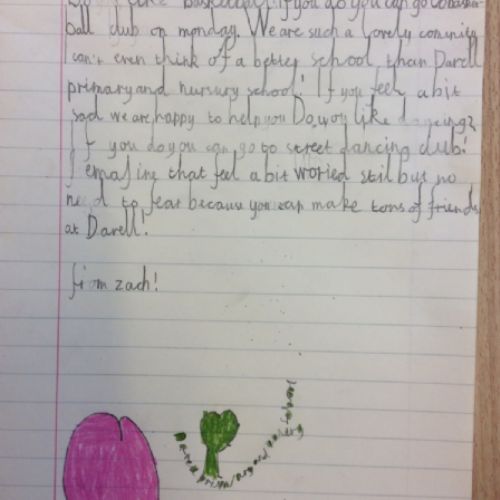 like basketball. If you do you can go to basket
ball club on monday. We are such a lovely comunity
I can't even think of a better school than Darell
primary and nursury school! If you feel a bit
sad we are happy to help you Do you like dancing?
If you do you can go to street dancing club!
I emagine that feel a bit woried stil but no
need to fear because you can make tons of friends
at Darell!
from zach!